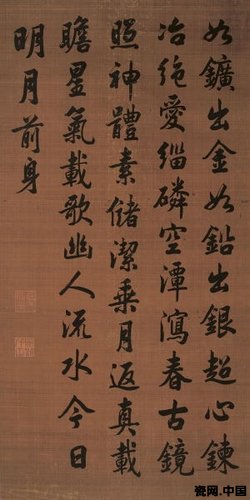 如鑛出金如鉛出銀超心鍊
冶絶愛緇磷空潭瀉春古鏡
照神體素儲潔乗月返真載
瞻星氣載歌幽人流水今日
明月前身
瓷网.中国